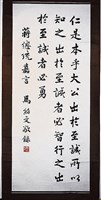 仁是本乎大公出於至誠所以
知之出於至誠者必智行之出
於至誠者必勇
蔣總統嘉言 馬文敬錄